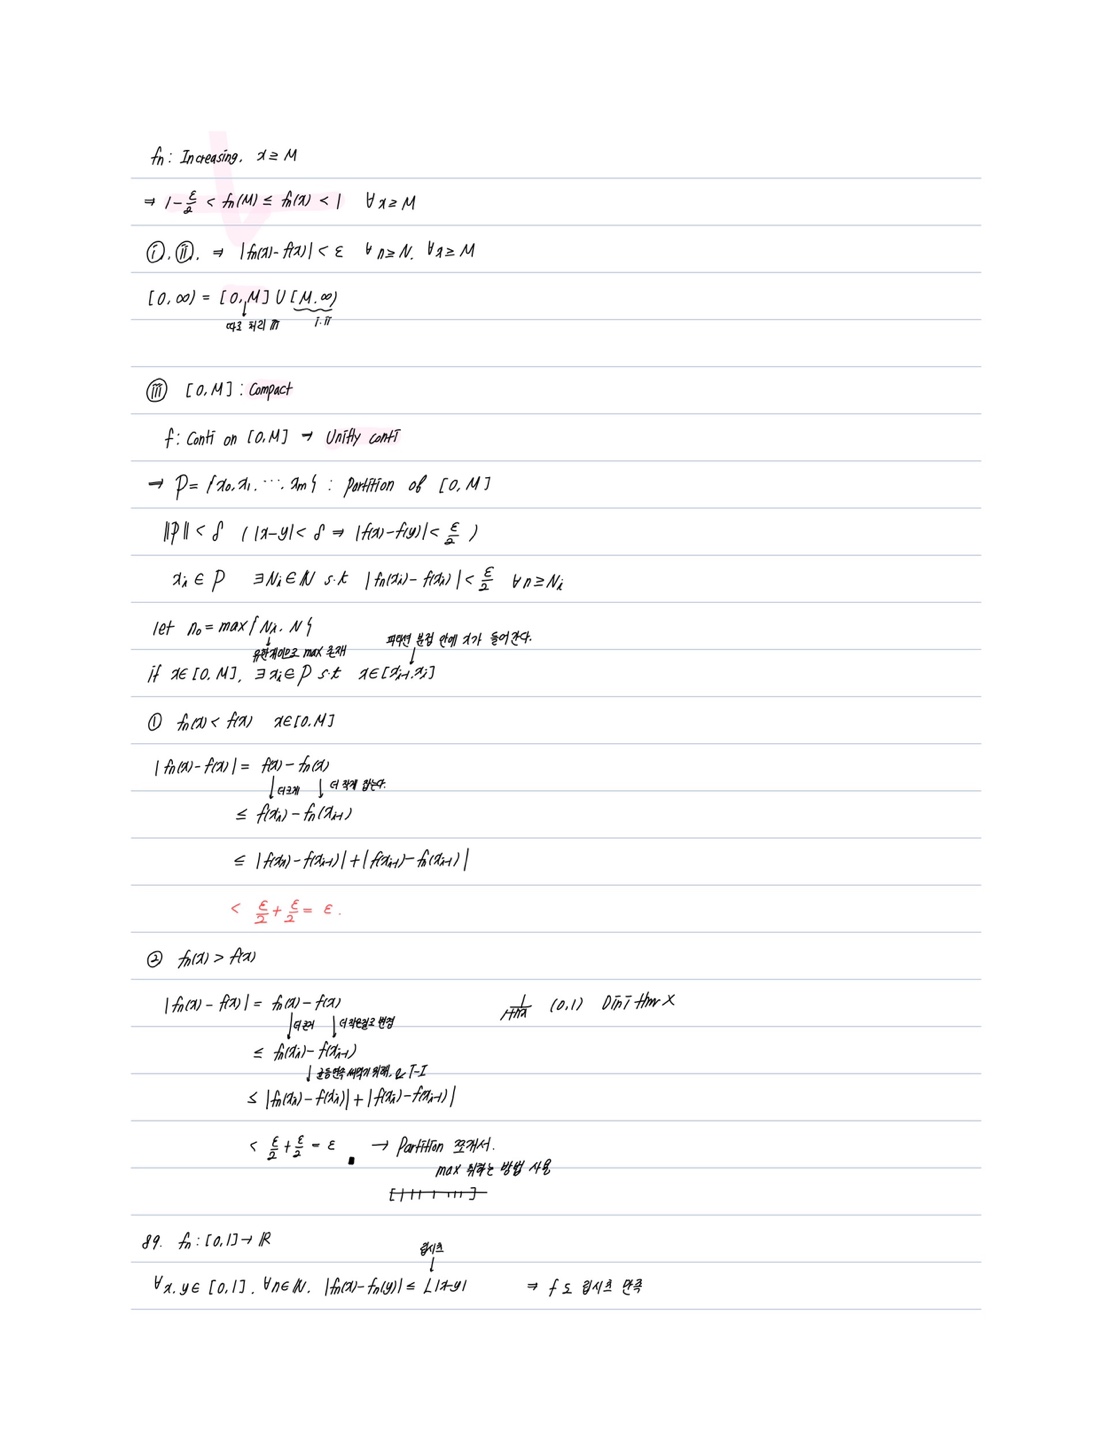 fn: Increasing, x ≥ M
⇒ 1-ε/2 < fn(M) ≤ fn(x) < 1 ∀x≥M
ⓘ, ⓘⓘ, ⇒ |fn(x)-f(x)| < ε ∀n≥N, ∀x≥M
[0,∞) = [0,M] ∪ [M,∞)
따로 처리 iii i, ii
ⓘⓘⓘ [0,M] : Compact
f: Conti on [0,M] → Unifly conti
→ P = {x0, x1, ⋯, xm} : Partition of [0,M]
||P|| < δ ( |x-y| < δ ⇒ |f(x)-f(y)| < ε/2 )
xi ∈ P ∃Ni ∈ ℕ s.t |fn(xi)-f(xi)| < ε/2 ∀n≥Ni
let n0 = max{Ni, N}
유한개이므로 max 존재 피타면 분점 안에 x가 들어간다.
if x∈[0,M], ∃xi∈P s.t x∈[xi-1, xi]
① fn(x) < f(x) x∈[0,M]
|fn(x)-f(x)| = f(x)-fn(x)
더크게 더 작게 잡는다.
≤ f(xi)-fn(xi-1)
≤ |f(xi)-f(xi-1)|+|f(xi-1)-fn(xi-1)|
< ε/2 + ε/2 = ε.
② fn(x) > f(x)
|fn(x)-f(x)| = fn(x)-f(x) 1/1+nx (0,1) Dini thm X
더크게 더작은걸로 변경
≤ fn(xi)-f(xi-1)
균등연속 써먹기 위해, & T-I
≤ |fn(xi)-f(xi)|+|f(xi)-f(xi-1)|
< ε/2 + ε/2 = ε → Partition 쪼개서.
max 취하는 방법 사용
89. fn : [0,1] → ℝ
립시츠
∀x,y∈[0,1], ∀n∈ℕ, |fn(x)-fn(y)| ≤ L|x-y| ⇒ f도 립시츠 만족